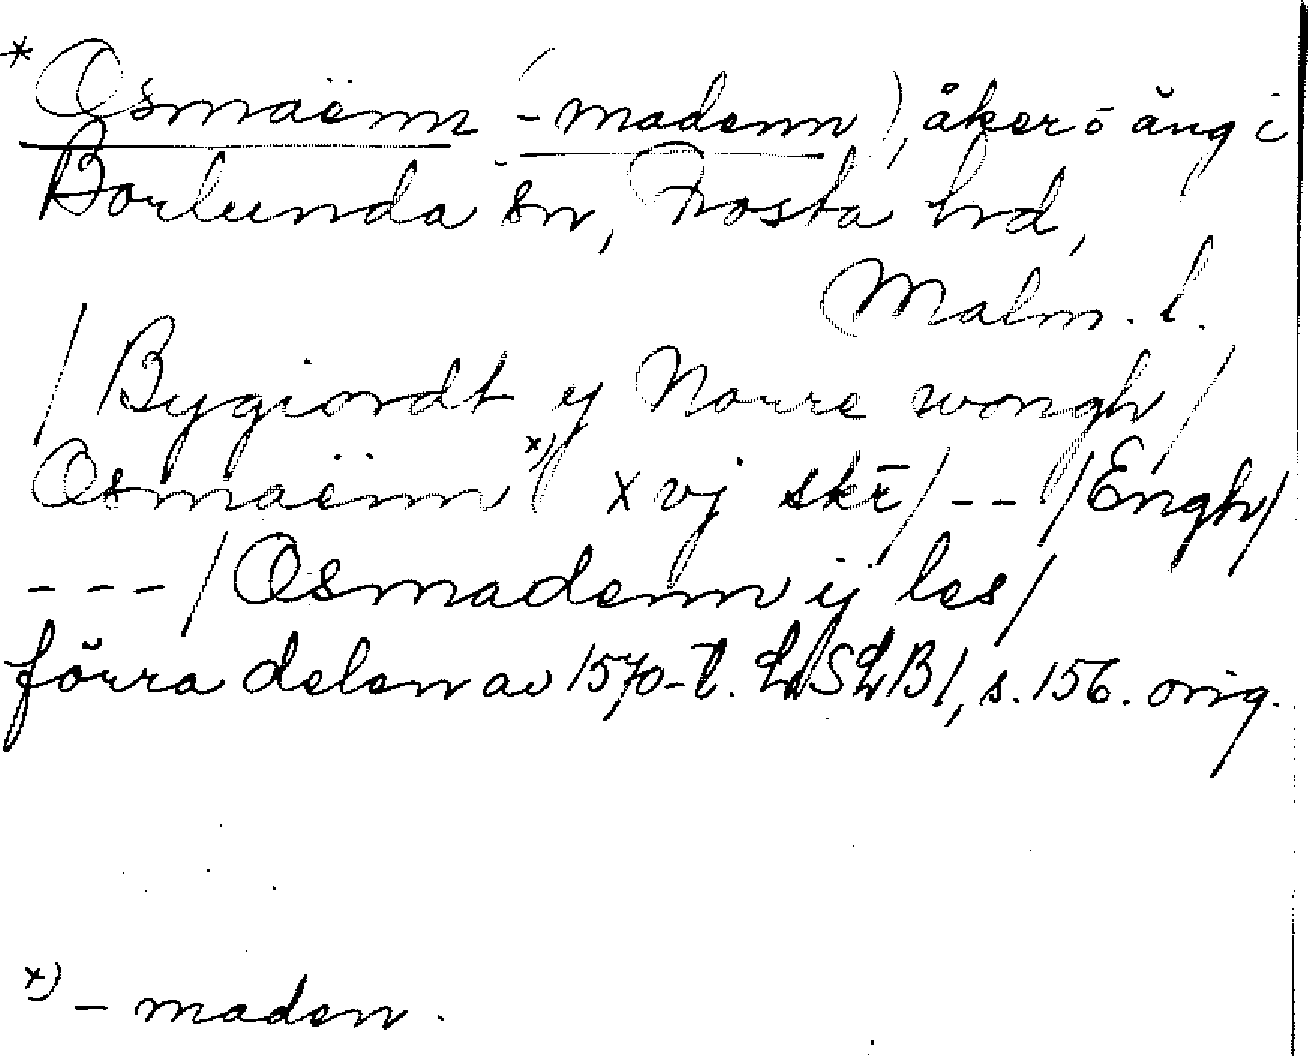 * Osmaënn (-madenn), åker o äng i
Borlunda sn, Frosta hd,
Malm. l.
/ Bygiordt y Norre wongh /
Osmaënn x) xvj skē / -- / Engh /
--- / Osmadenn ij les /
förra delen av 1570-t. LdSLB 1, s. 156. orig.
x) - maden.